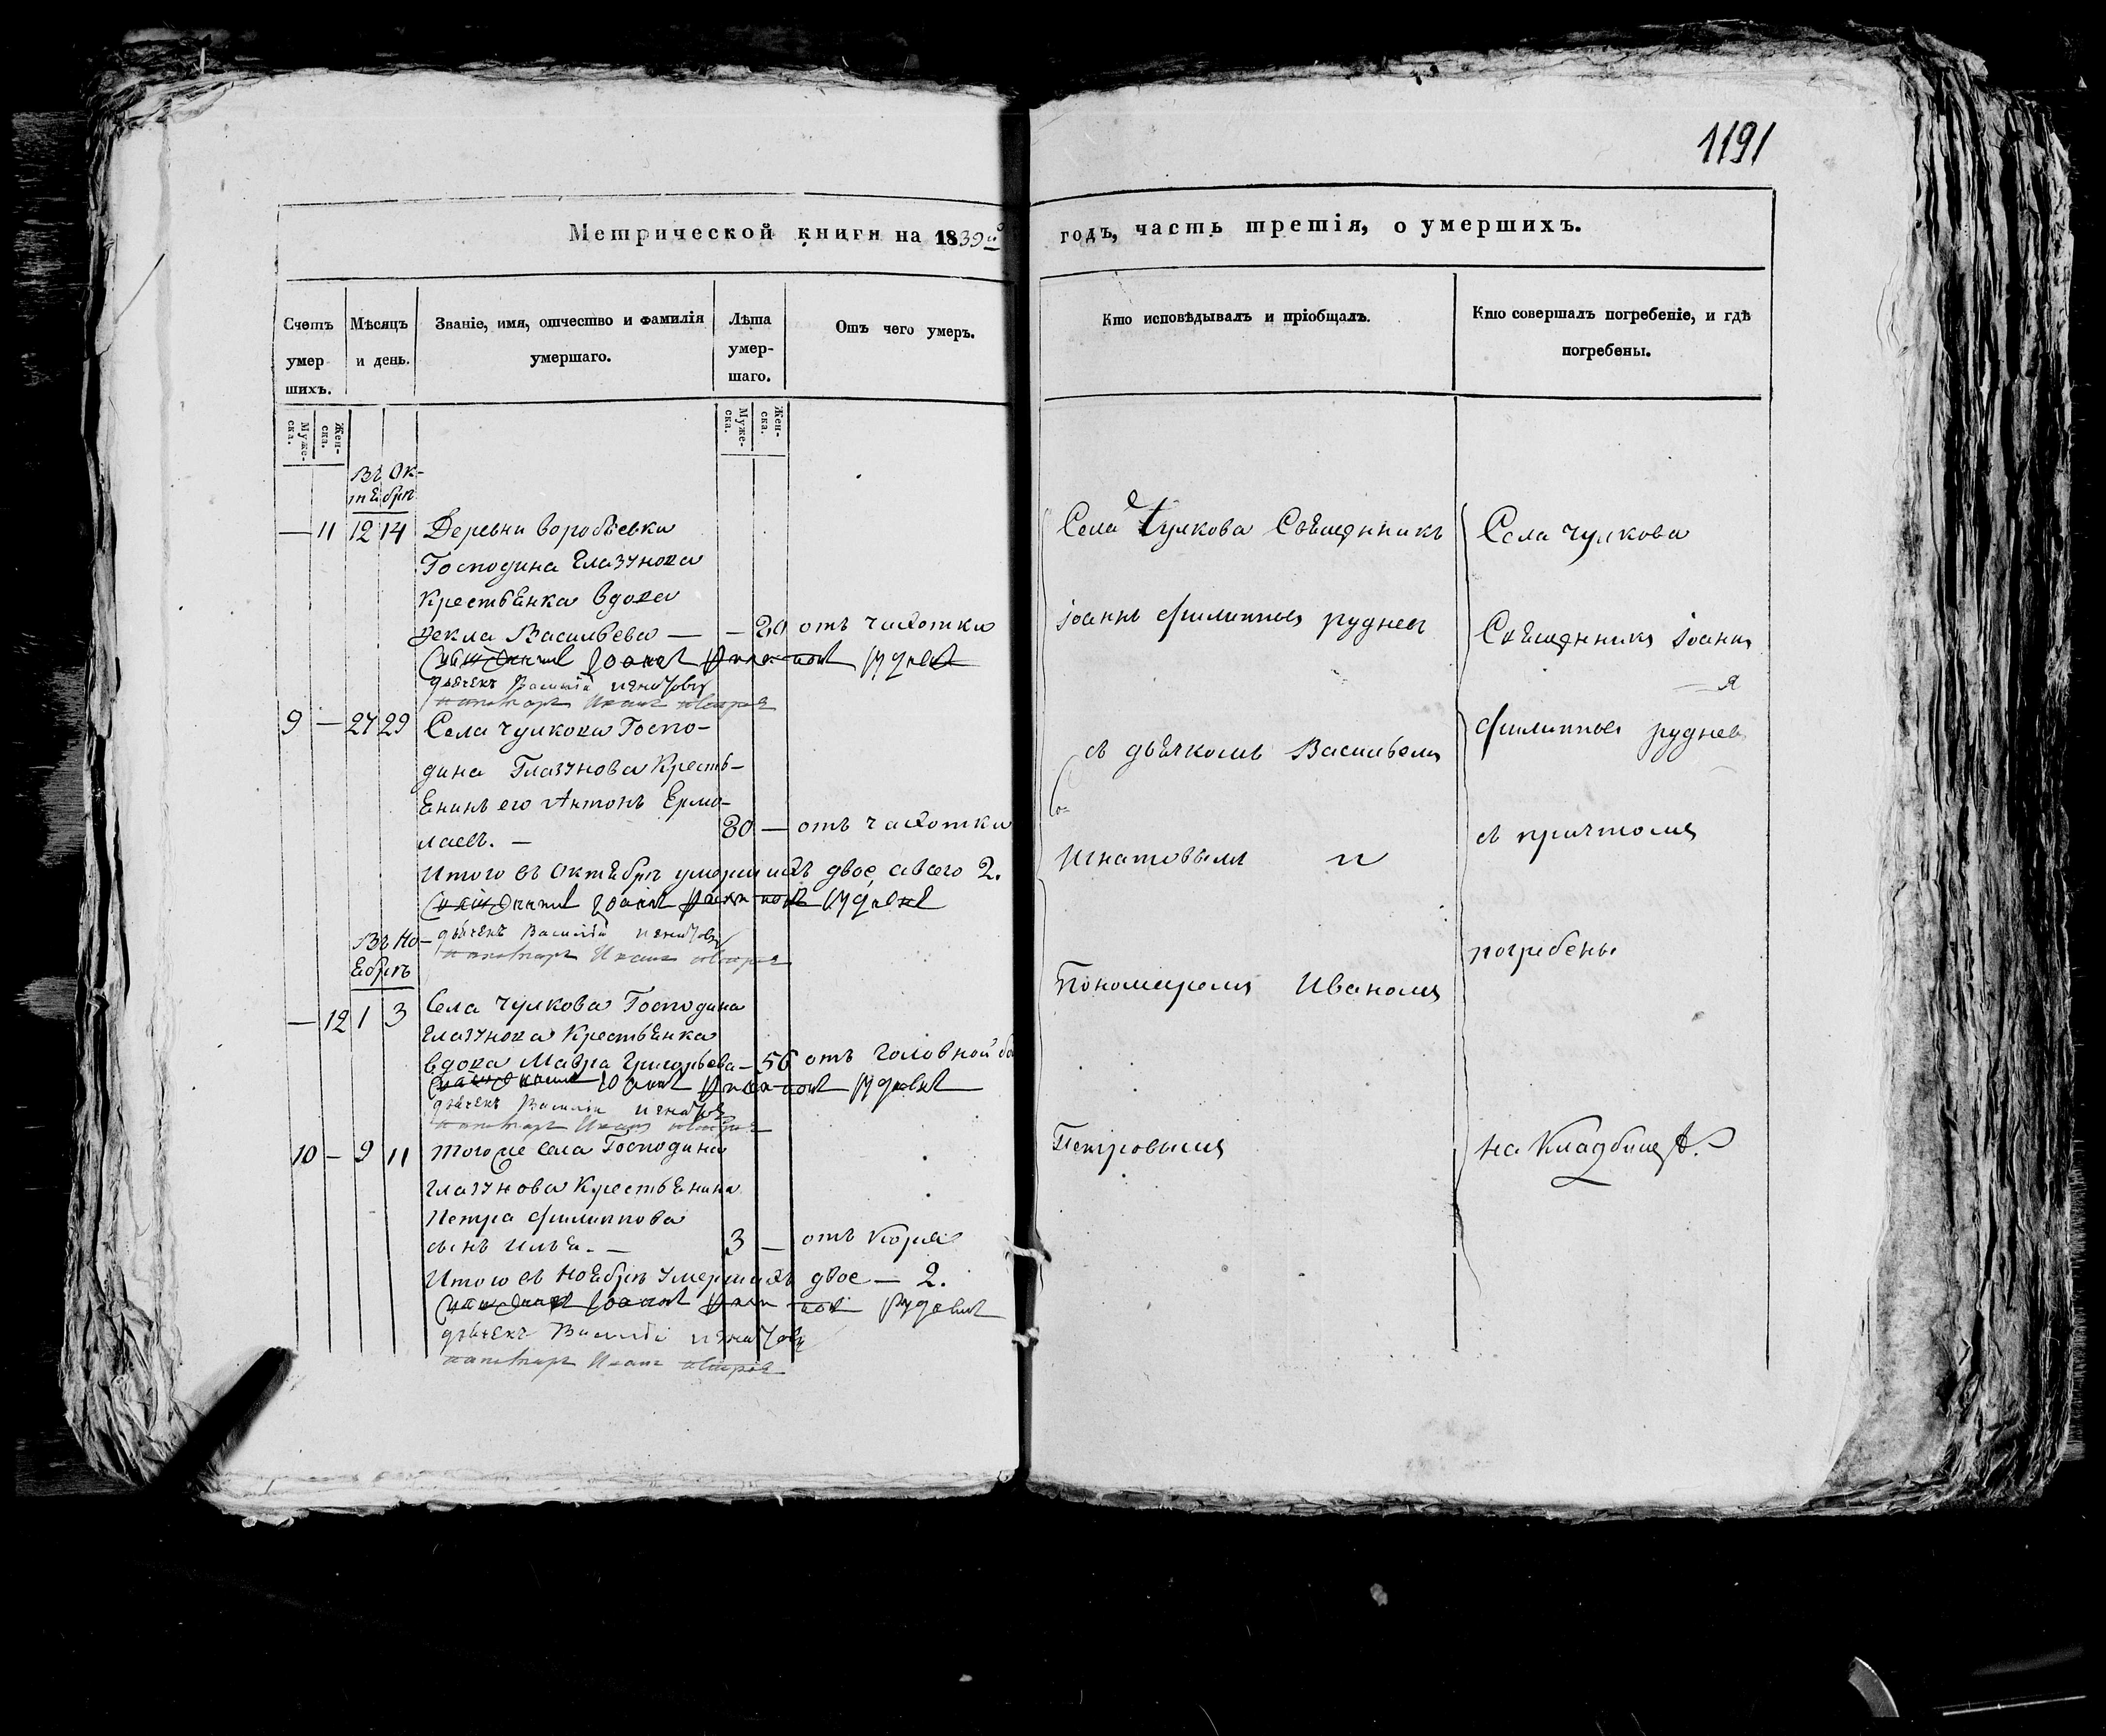 1191
Метрической книги на 1839й годъ, часть третія, о умершихъ.
Счетъ умер шихъ.
Мѣсяцъ и день.
Званіе, имя, отчество и фамилія умершаго.
Лѣта умер- шаго.
Отъ чего умеръ.
Кто исповѣдывалъ и пріобщалъ.
Кто совершалъ погребеніе, и гдѣ погребены.
Муже- ска.
Жен- ска.
Муже- ска.
Жен- ска.
Въ Ок-
тебрѣ
— 11 12 14 Деревни Воробьевки
Господина Глазунова
Крестьенка вдова
Фекла Васильева — —
отъ чахотки
Священникъ Іоаннъ Филипповъ Рудневъ
дьячекъ Василій Игнатовъ
пономарь Иванъ Петровъ
9 — 27 29 Села Чулкова Госпо-
дина Глазунова Кресть-
енинъ его Антонъ Ермо-
лаевъ. — 80 — отъ чахотки
Итого въ Октебрѣ умершихъ двое, а всего 2.
Священникъ Іоаннъ Филипповъ Рудневъ
дьячекъ Василій Игнатовъ
пономарь Иванъ Петровъ
Въ Но-
ебрѣ
— 12 1 3 Села Чулкова Господина
Глазунова Крестьенка
вдова Мавра Григорьева — 56 отъ головной
Священникъ Іоаннъ Филипповъ Рудневъ
дьячекъ Василій Игнатовъ
пономарь Иванъ Петровъ
10 — 9 11 Того же Села Господина
Глазунова Крестьенина
Петра Филиппова
сынъ Илья. — 3 — отъ Коря
Итого въ Ноебрѣ умершихъ двое — 2.
Священникъ Іоаннъ Филипповъ Рудневъ
дьячекъ Василій Игнатовъ
пономарь Иванъ Петровъ
Села Чулкова Священникъ
Іоаннъ Филипповъ Рудневъ
съ дьячкомъ Васильемъ
Игнатовымъ и
Пономаремъ Иваномъ
Петровымъ
Села Чулкова
Священникъ Іоаннъ
Филипповъ Рудневъ
съ причтомъ
погребены
на Кладбищѣ.